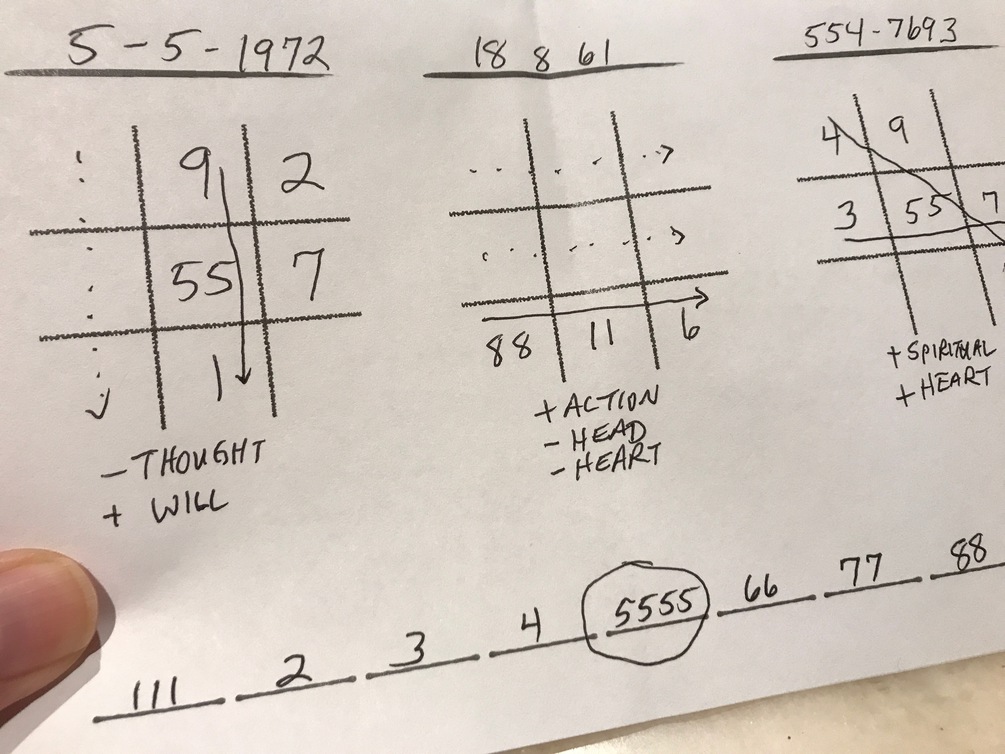 5-5-1972
9 2
55 7
1
- THOUGHT
+ WILL
18 8 61
88 11 6
+ ACTION
- HEAD
- HEART
554-7693
4 9
3 55 7
+ SPIRITUAL
+ HEART
111 2 3 4 5555 66 77 88